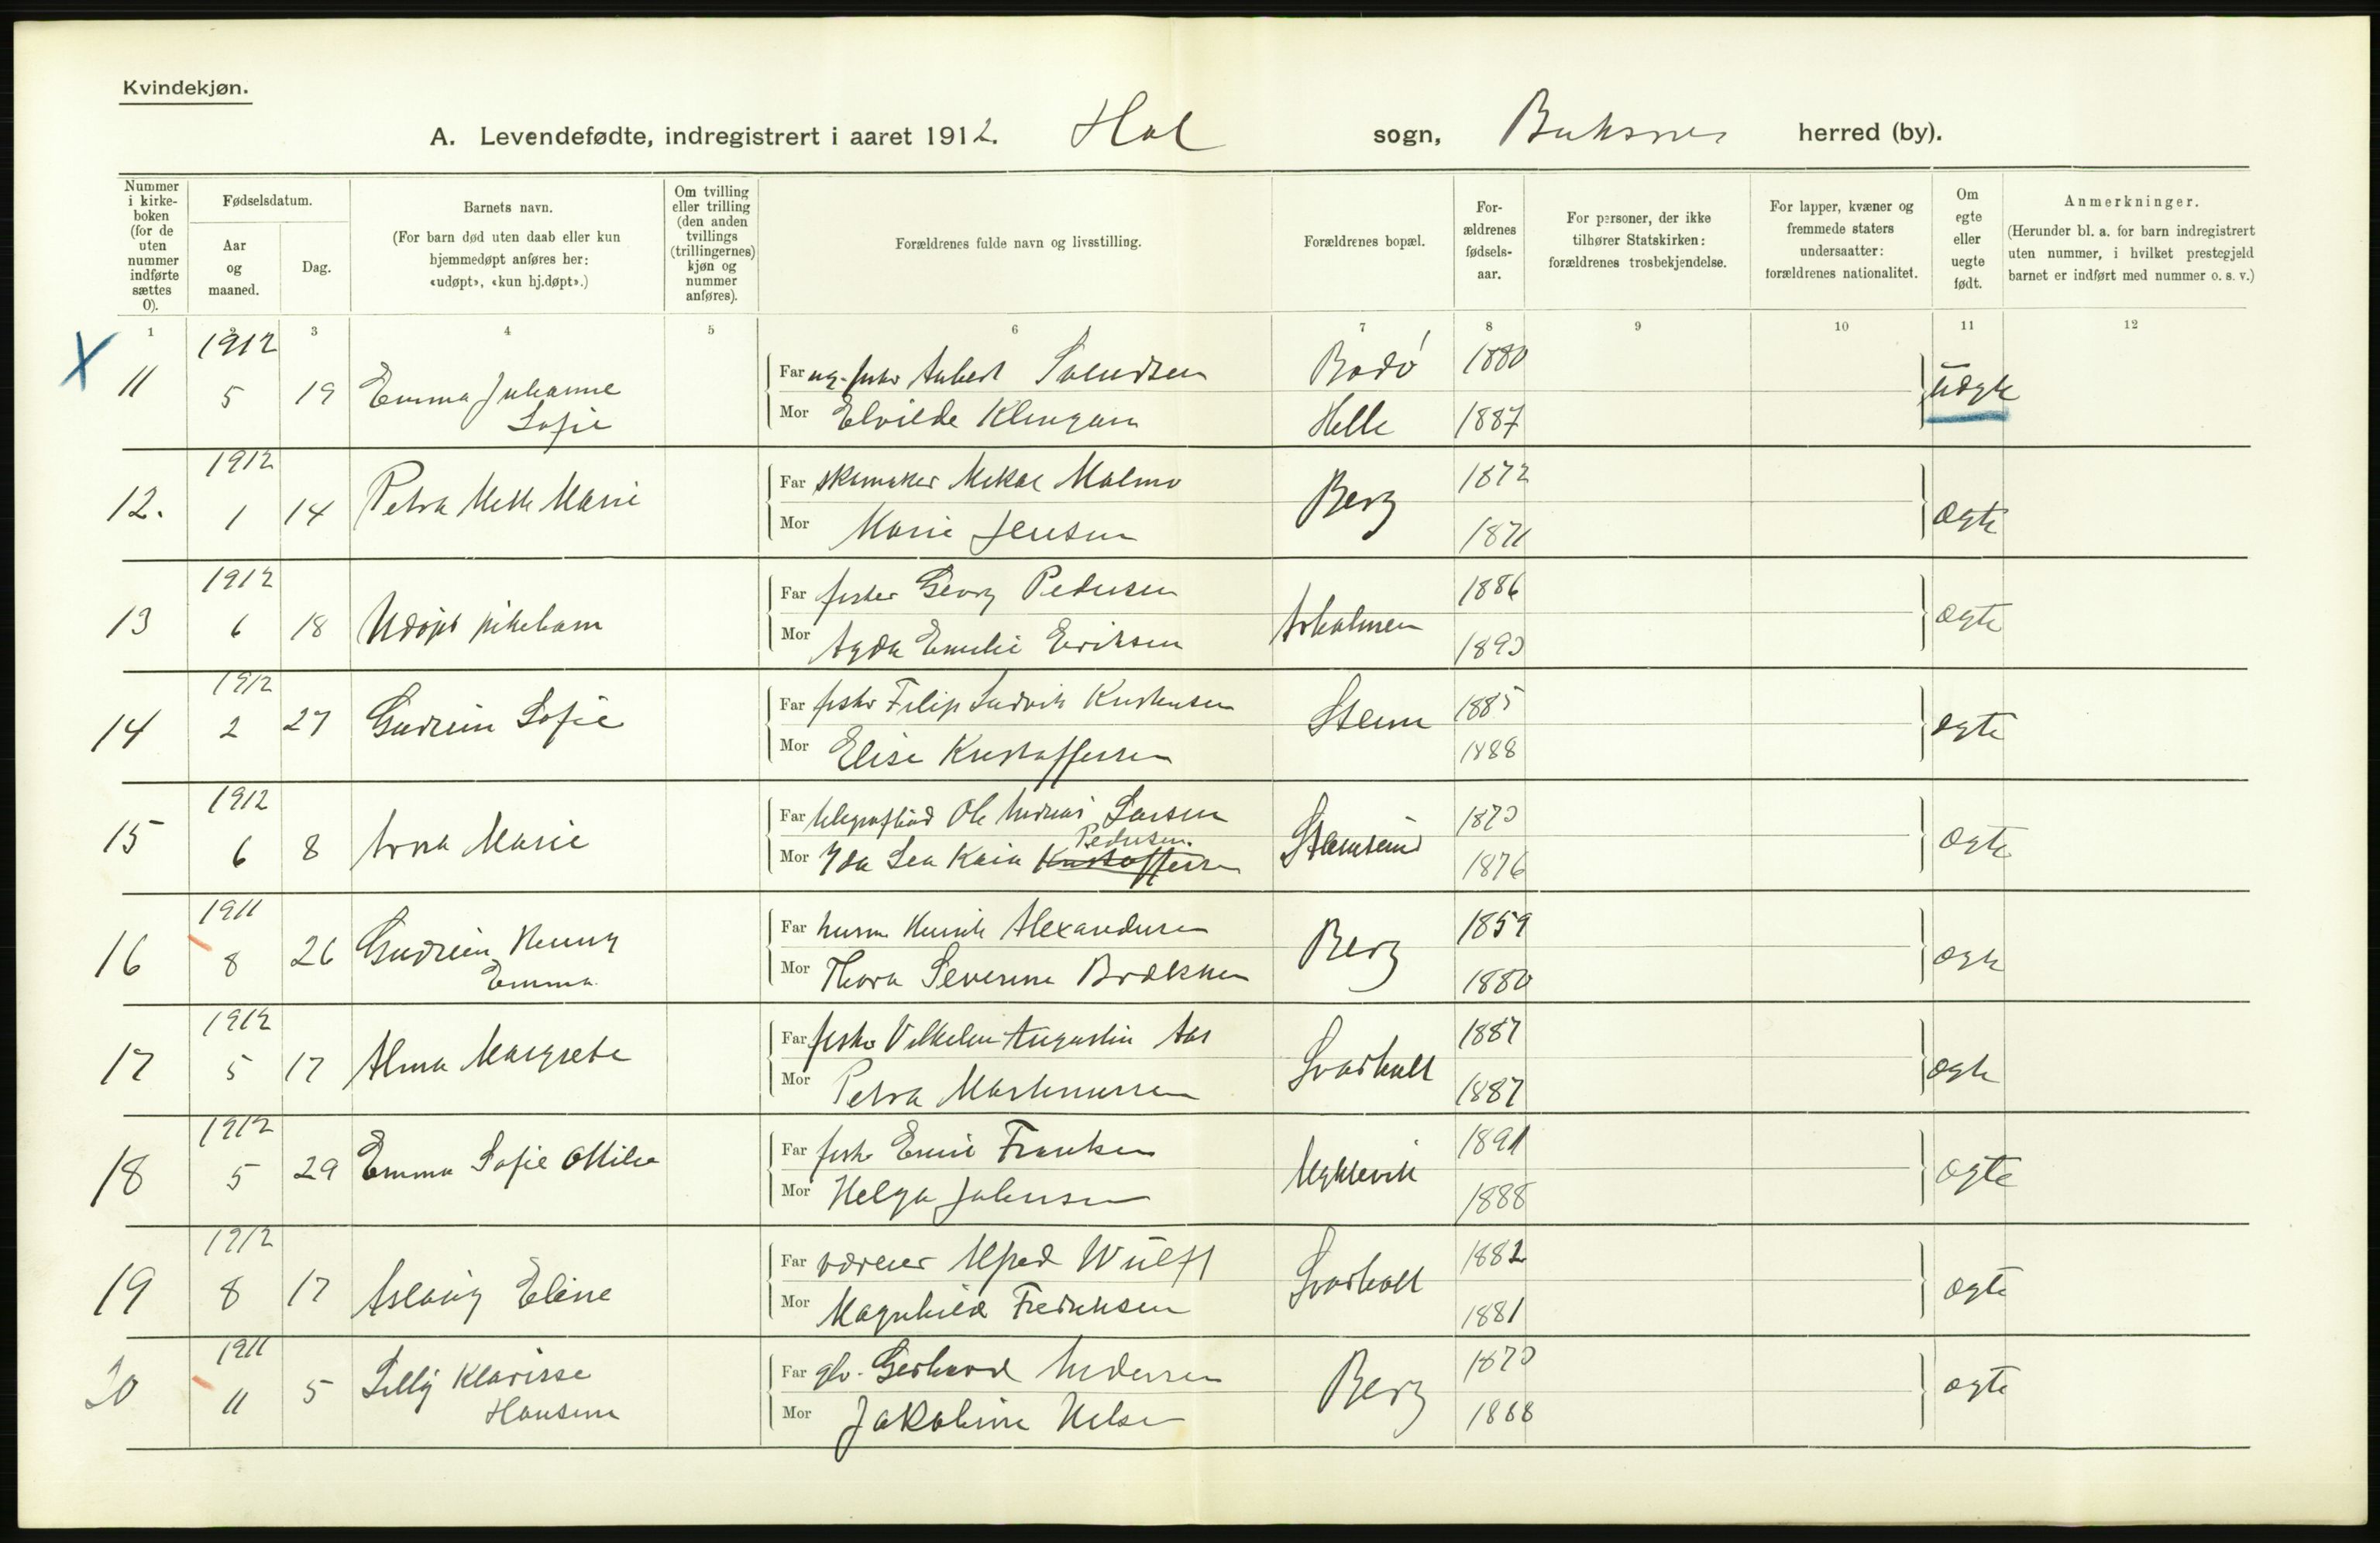 Kvindekjøn.
A. Levendefødte, indregistrert i aaret 1912. Hol sogn, Buksnes herred (by).
Nummer i kirke-boken (for de uten nummer indførte sættes 0).
Fødselsdatum.
Aar og maaned.
Dag.
Barnets navn.
(For barn død uten daab eller kun hjemmedøpt anføres her: «udøpt», «kun hj.døpt».)
Om tvilling eller trilling (den anden tvillings (trillingernes) kjøn og nummer anføres).
Forældrenes fulde navn og livsstilling.
Forældrenes bopæl.
For-ældrenes fødsels-aar.
For personer, der ikke tilhører Statskirken: forældrenes trosbekjendelse.
For lapper, kvæner og fremmede staters undersaatter: forældrenes nationalitet.
Om egte eller uegte født.
Anmerkninger.
(Herunder bl. a. for barn indregistrert uten nummer, i hvilket prestegjeld barnet er indført med nummer o. s. v.)
1 2 3 4 5 6 7 8 9 10 11 12
X 11 1912 5 19 Emma Johanne Sofie
Far Svendsen Bodø 1880
Mor Elvilde Klengan Helle 1887
12. 1912 1 14 Petra Mette Marie
Far skomaker Mikal Malmo Berg 1872 ægte
Mor Marie Jensen 1871
13 1912 6 18 Udøpt pikebarn
Far fisker Georg Pedersen 1886 ægte
Mor Agda Emelie Eriksen 1890
14 1912 2 27 Gudrun Sofie
Far fisker Filip Ludvik Kristensen Steine 1885 ægte
Mor Elise Kristoffersen 1888
15 1912 6 8 Arna Marie
Far telegrafbud Ole Andreas Larsen Stamsund 1870 ægte
Pedersen.
Mor Ida Lea Kaia Kristoffersen 1876
16 1911 8 26 Gudrun Henny Emma
Far Henrik Alexandersen Berg 1859 ægte
Mor Thora Severine Brækken 1880
17 1912 5 17 Alma Margrete
Far fisker Vilhelm Augustin Aas Svarholt 1887 ægte
Mor Petra Martinussen 1887
18 1912 5 29 Emma Sofie Ottilie
Far fisker Emil Frantsen Myklevik 1891 ægte
Mor Helga Johnsen 1888
19 1912 8 17 Aslaug Eline
Far væreier Alfred Wulff Svarholt 1882 ægte
Mor Magnhild Fredriksen 1881
20 1911 11 5 Lilly Klarisse Hansine
Far gbr. Gerhard Andersen Berg 1870 ægte
Mor Jakobine Nilsen 1868